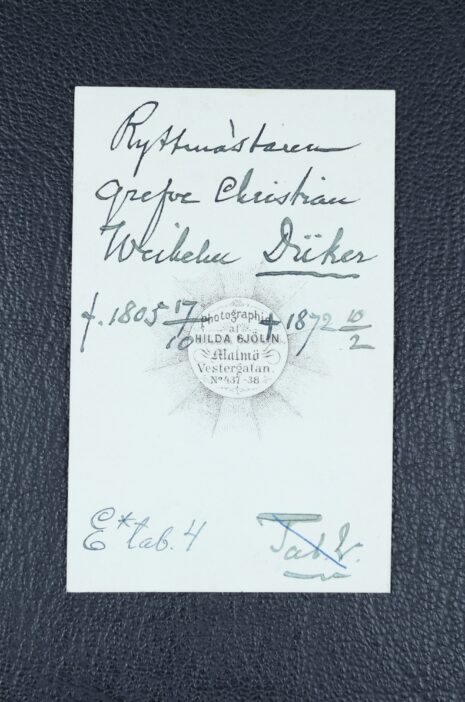 Ryttmästaren
grefve Christian
Weihelm Düker
f. 1805 17/10 † 1872 10/2
Photographi
af
HILDA SJÖLIN
Malmö
Vestergatan.
No 437-38
E* tab. 4
Tab. V.